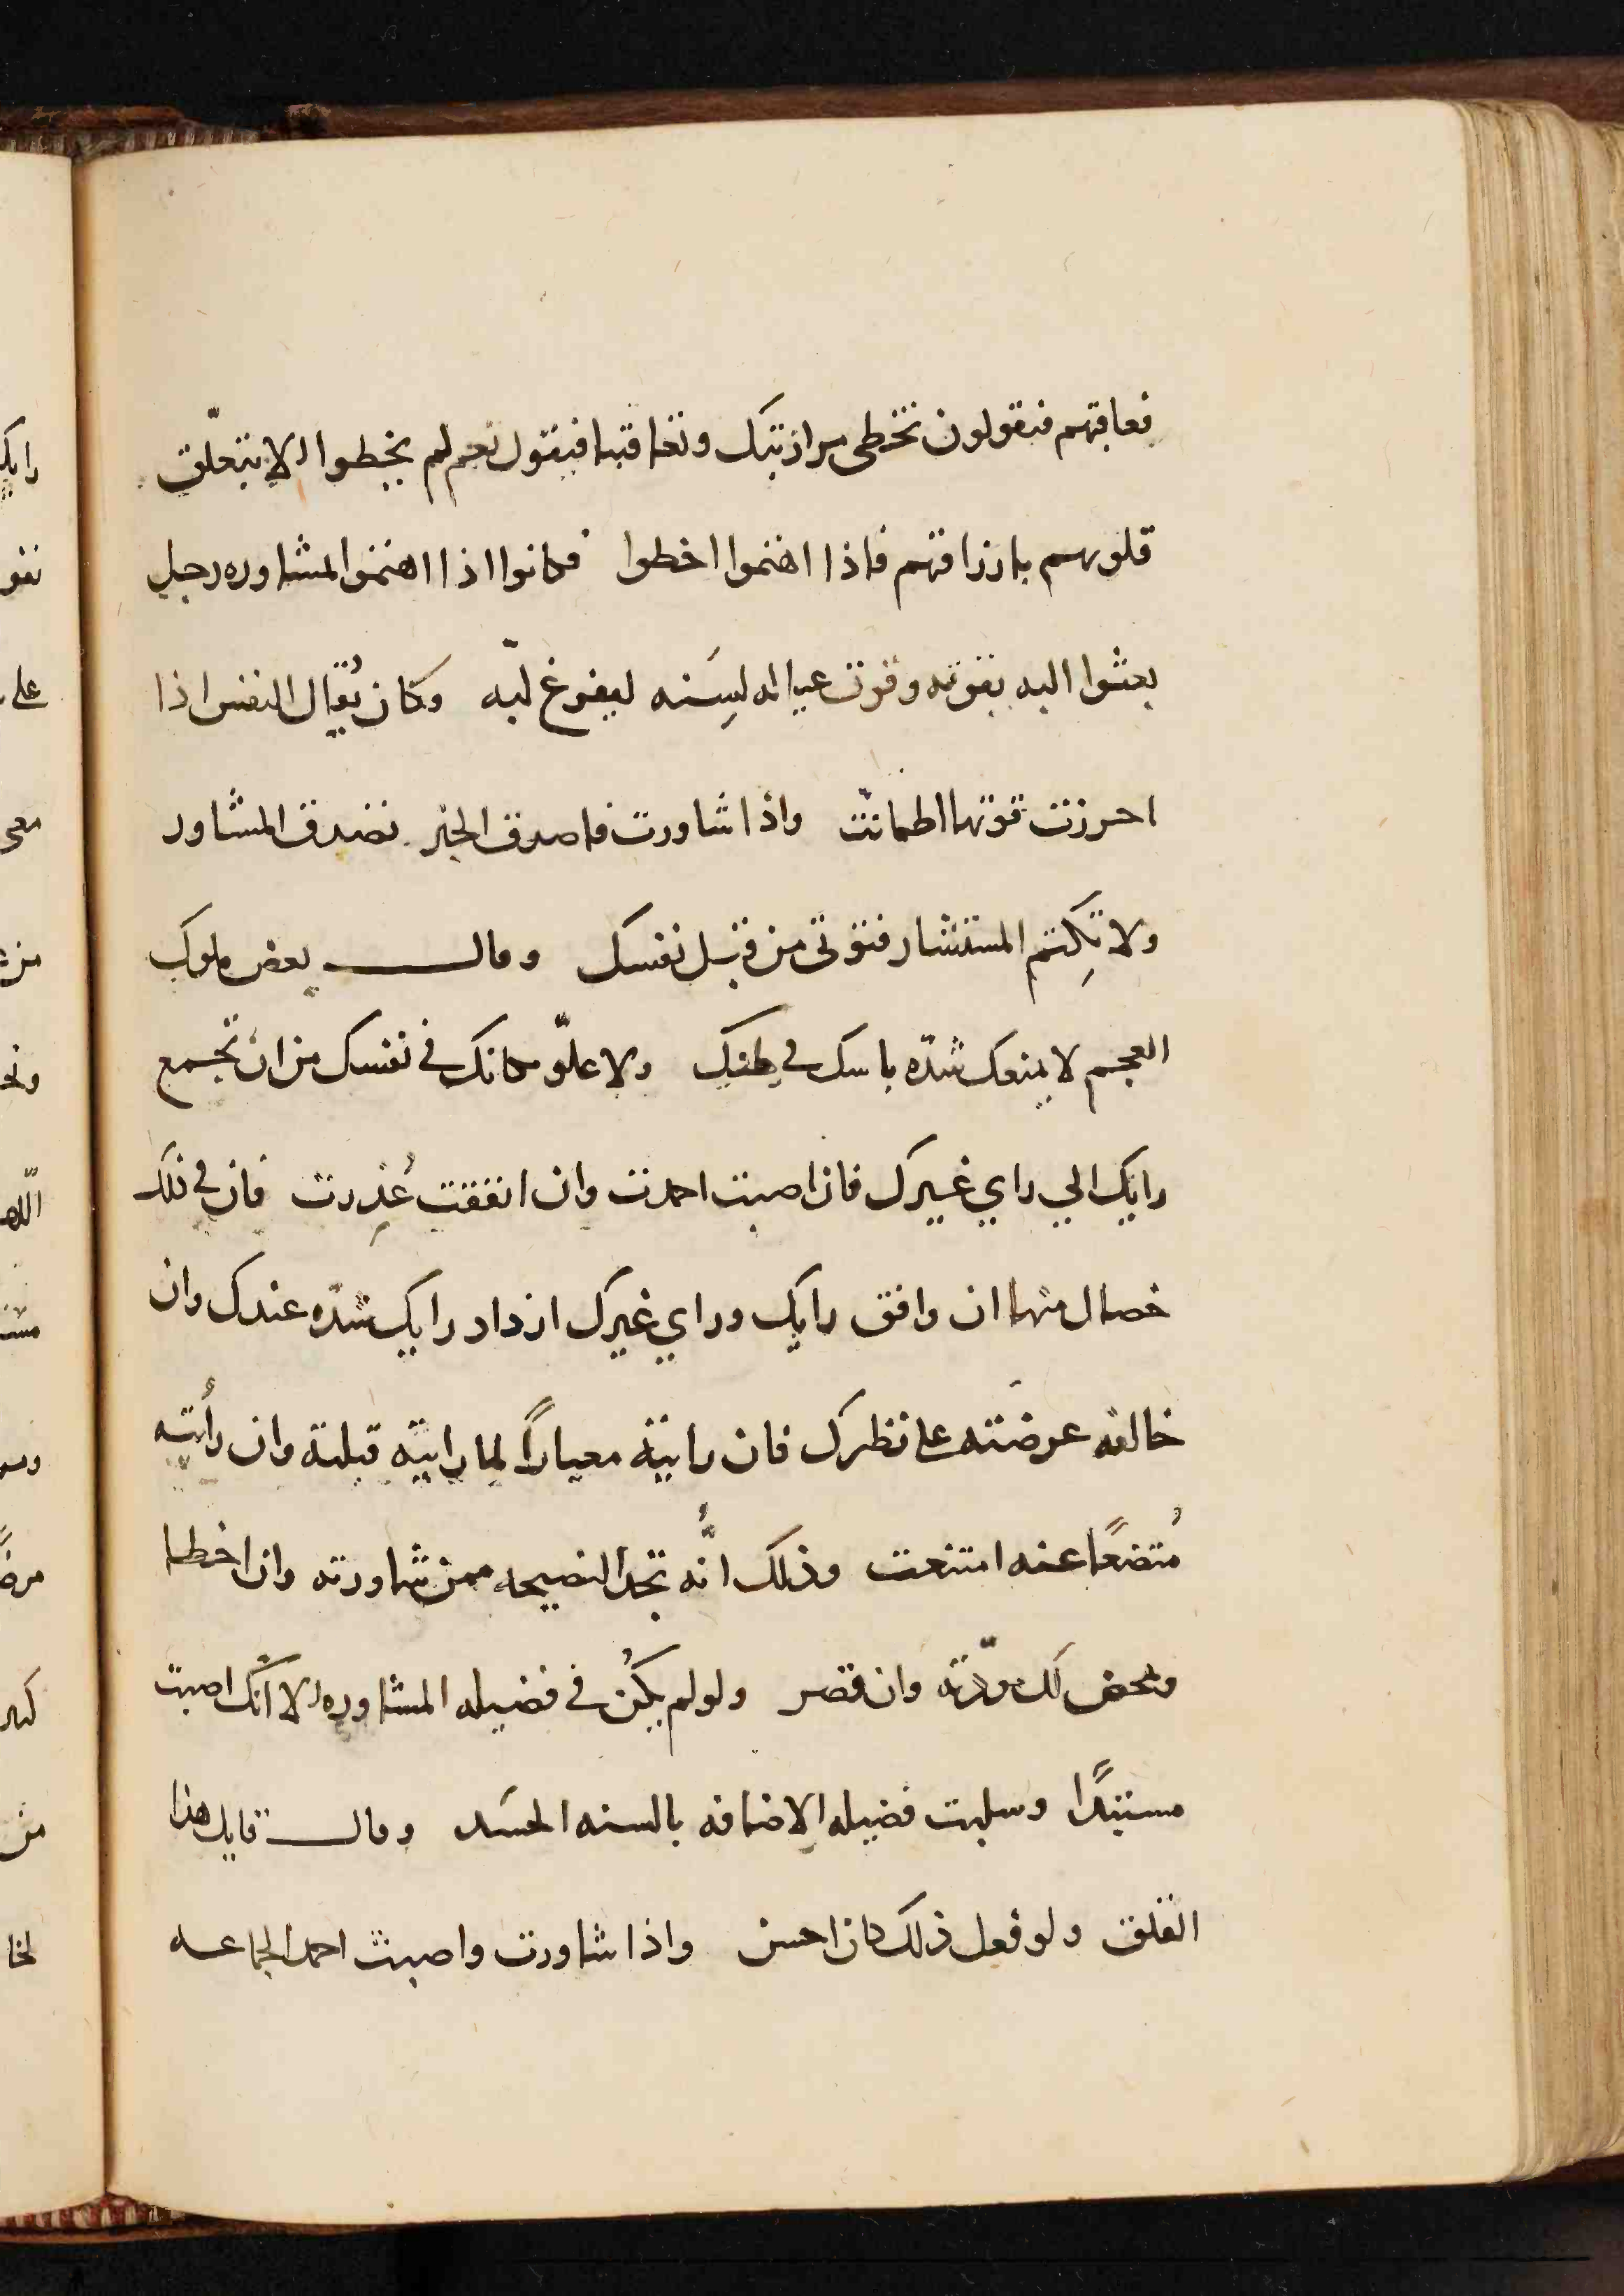 فعاقبهم فيقولون تخطى مرازبتك وتعاقبنا فيقول نعم لم يخطوا الا بتعلّق
قلوبهم بارزاقهم فاذا اهتموا اخطوا فكانوا اذا اهتموا لمشاوره رجل
بعثوا اليه بقوته وقوت عياله لسَنه ليفرغ لبّه وكان يُقال النفس اذا
احرزت قوتها اطمانّت واذا شاورت فاصدق الخبر تصدق المشاور
ولا تكتم المستشار فتوتى من قبل نفسك وقال بعض ملوك
العجم لا يمنعك شدّه باسك في ولا علوّ مكانك في نفسك من ان تجمع
رايك الي راي غيرك فان اصبت احمدت وان انفقت عُذِرت فان في ذلك
خصال منها ان وافق رايك وراي غيرك ازداد رايك شدّه عندك وان
خالفه عرضته على نظرك فان رايته معياراً لما رايته قبلته وان رأته
مُتضعًا عنه امتنعت وذلك انّه تجد النصيحه ممن شاورته وان اخطا
ومحض لك مودّته وان قصر ولو لم يكُن في فضيله المشاوره الا انّك اصبت
مستبدًا وسلبت فضيله الاضافه بالسنه الحسَد وقال قايل هذا
القلق ولو فعل ذلك كان احسن واذا شاورت واصبت احمد الجماعه